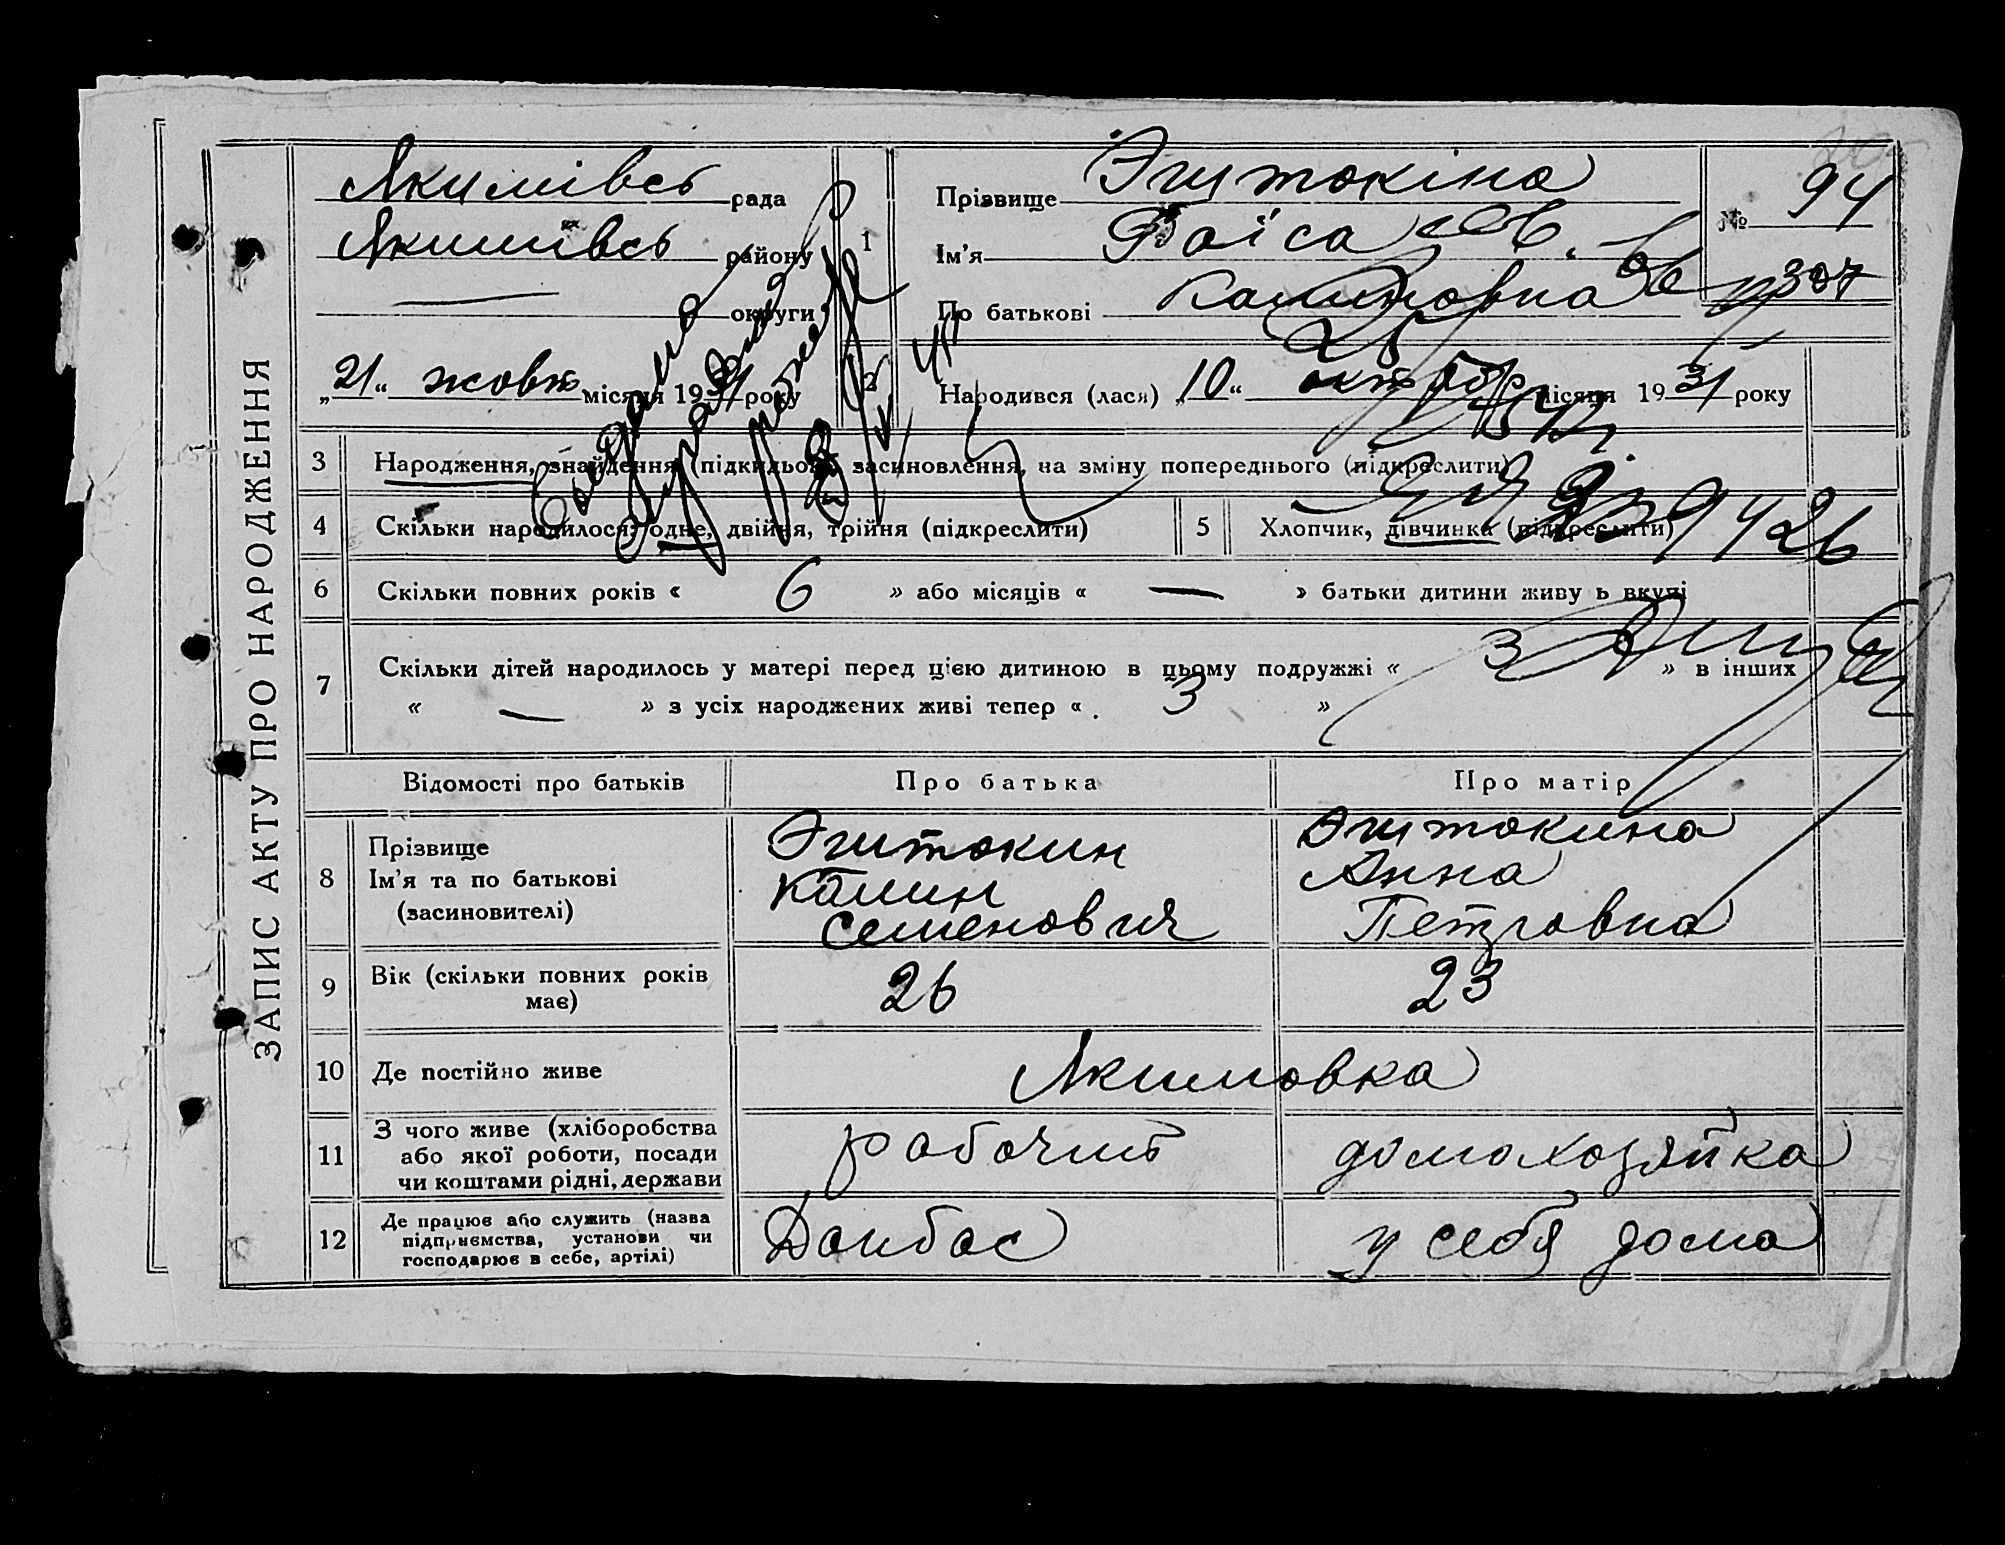 ЗАПИС АКТУ ПРО НАРОДЖЕННЯ
Якимівсь рада
Якимівсь району
округи
1
Прізвище
Ім'я Раїса
По батькові Калиновна
№ 94
„21“ жовт місяця 1931 року
2
Народився (лася) „10“ октября місяця 1931 року
3 Народження, знайдення (підкидьок), засиновлення, на зміну попереднього (підкреслити)
4 Скільки народилося: одне, двійня, трійня (підкреслити)
5 Хлопчик, дівчинка (підкреслити)
6 Скільки повних років « 6 » або місяців « — » батьки дитини живу ь вкупі
7 Скільки дітей народилось у матері перед цією дитиною в цьому подружжі « 3 » в інших
« — » з усіх народжених живі тепер « 3 »
Відомості про батьків Про батька Про матір
8 Прізвище
Ім'я та по батькові
(засиновителі)
Калин
Семенович
Анна
Петровна
9 Вік (скільки повних років
має)
26 23
10 Де постійно живе Якимовка
11 З чого живе (хліборобства
або якої роботи, посади
чи коштами рідні, держави
рабочий домохозяйка
12 Де працює або служить (назва
підприємства, установи чи
господарює в себе, артілі)
Донбас у себя дома